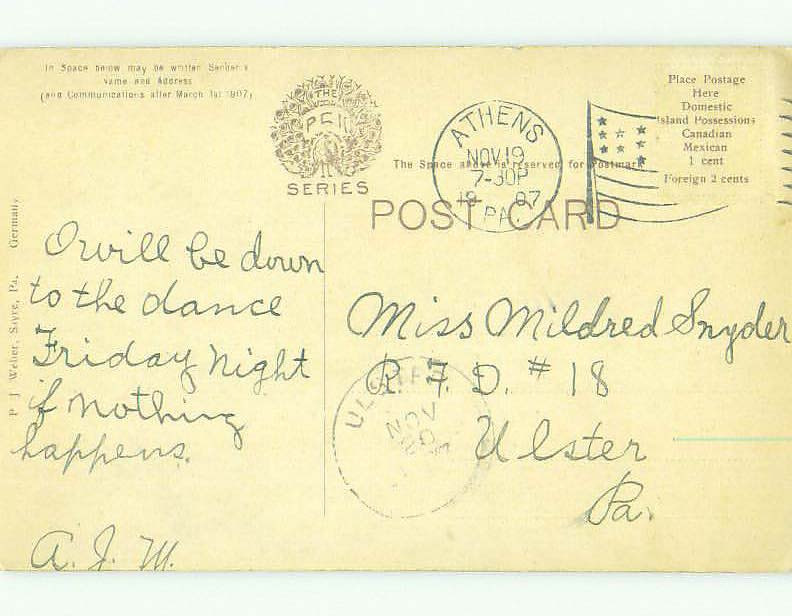 In Space below may be written Sender's
Name and Address
(and Communications after March 1st 1907)
THE
PCK
SERIES
ATHENS
NOV 19
7-30P
19 07
PA.
Place Postage
Here
Domestic
Island Possessions
Canadian
Mexican
1 cent
Foreign 2 cents
The Space above is reserved for Postmark
POST CARD
P J Weber, Sayre, Pa. Germany
I will be down
to the dance
Friday night
if nothing
happens.
A. J. M.
Miss Mildred Snyder
R. F. D. # 18
Ulster
Pa.
ULSTER
NOV
20